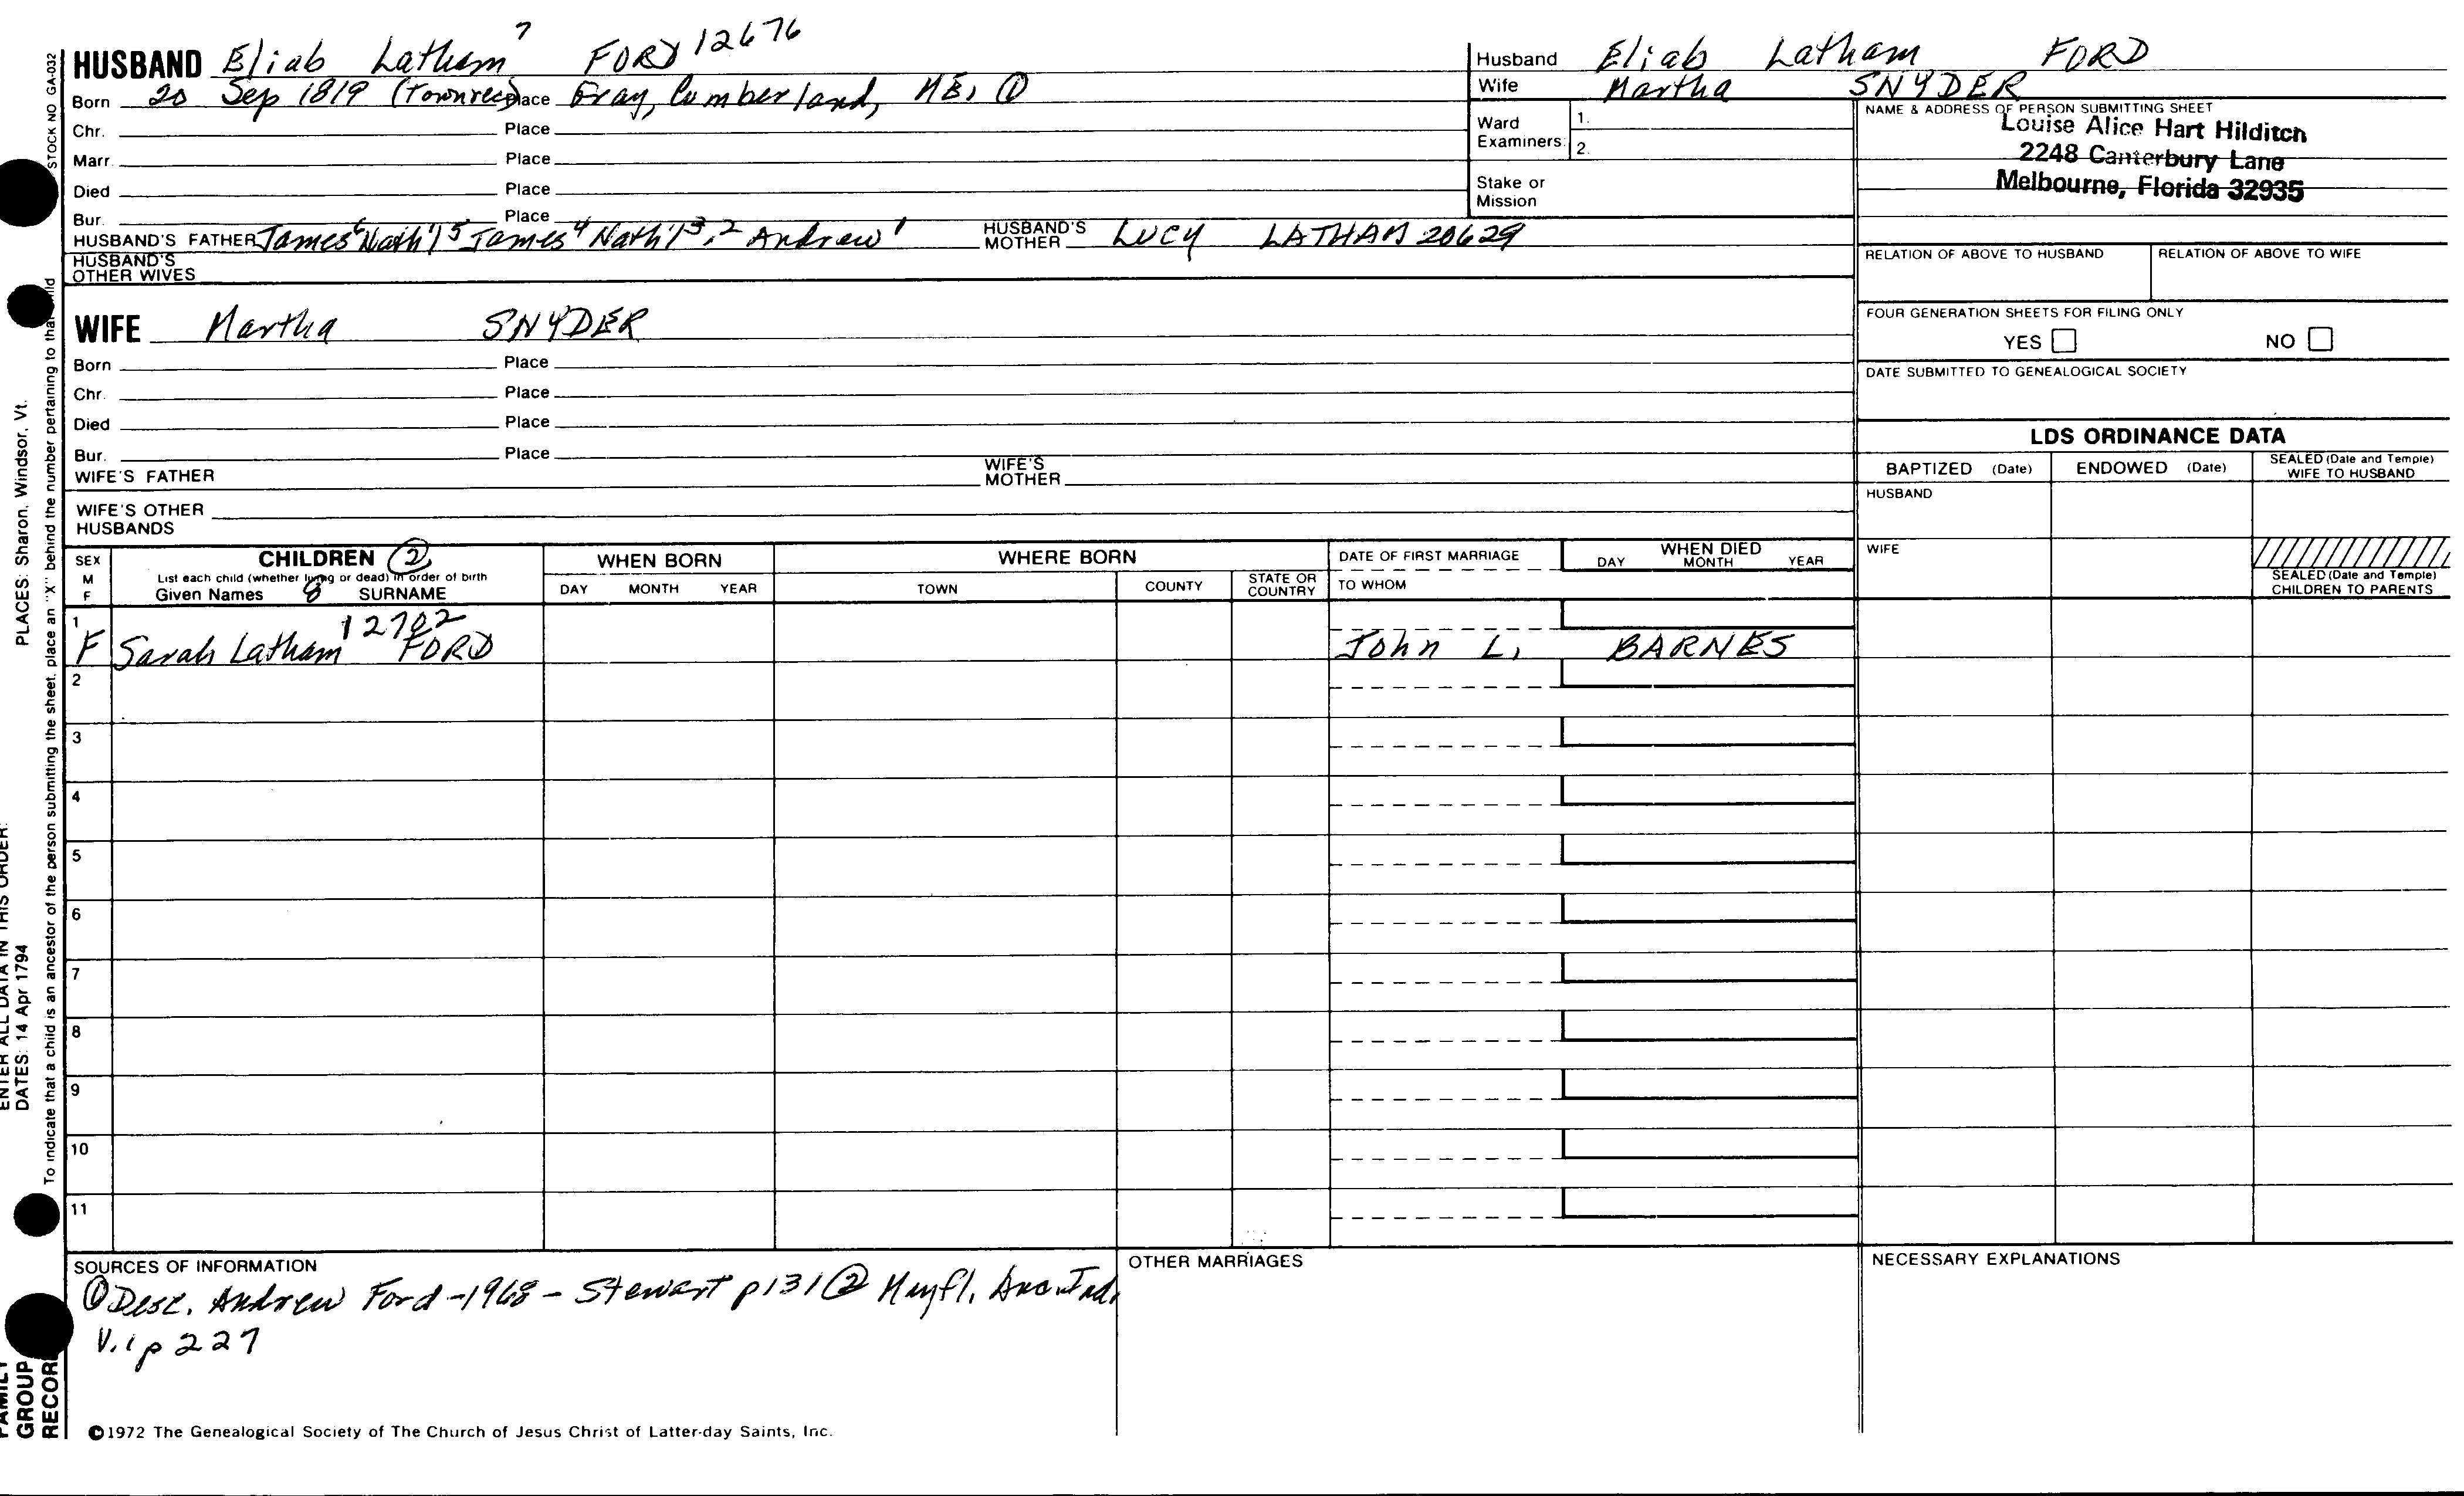 HUSBAND Eliab Latham 7 FORD 12676
Born 20 Sep 1819 (Townrec) Place Gray, Cumberland, ME, ①
Chr. Place
Marr. Place
Died Place
Bur. Place
HUSBAND'S FATHER James 6 Nath'l 5 James 4 Nath'l 3,2 Andrew 1 HUSBAND'S MOTHER LUCY LATHAM 20629
HUSBAND'S OTHER WIVES
Husband Eliab Latham FORD
Wife Martha SNYDER
Ward Examiners: 1.
2.
Stake or Mission
NAME & ADDRESS OF PERSON SUBMITTING SHEET
Louise Alice Hart Hilditch
2248 Canterbury Lane
Melbourne, Florida 32935
RELATION OF ABOVE TO HUSBAND RELATION OF ABOVE TO WIFE
FOUR GENERATION SHEETS FOR FILING ONLY
YES NO
DATE SUBMITTED TO GENEALOGICAL SOCIETY
WIFE Martha SNYDER
Born Place
Chr. Place
Died Place
Bur. Place
WIFE'S FATHER WIFE'S MOTHER
WIFE'S OTHER HUSBANDS
LDS ORDINANCE DATA
BAPTIZED (Date) ENDOWED (Date) SEALED (Date and Temple) WIFE TO HUSBAND
HUSBAND
WIFE
SEALED (Date and Temple) CHILDREN TO PARENTS
SEX M F
CHILDREN ②
List each child (whether living or dead) in order of birth
Given Names 8 SURNAME
WHEN BORN
DAY MONTH YEAR
WHERE BORN
TOWN COUNTY STATE OR COUNTRY
DATE OF FIRST MARRIAGE
TO WHOM
WHEN DIED
DAY MONTH YEAR
1 12702
F Sarah Latham FORD John L. BARNES
2
3
4
5
6
7
8
9
10
11
SOURCES OF INFORMATION
① Desc. Andrew Ford -1968 - Stewart p131 ② Mayfl. Anc. Ind.
V.1 p 227
OTHER MARRIAGES
NECESSARY EXPLANATIONS
©1972 The Genealogical Society of The Church of Jesus Christ of Latter-day Saints, Inc.
STOCK NO GA-032
To indicate that a child is an ancestor of the person submitting the sheet, place an "X" behind the number pertaining to that child
PLACES: Sharon, Windsor, Vt.
ENTER ALL DATA IN THIS ORDER:
DATES: 14 Apr 1794
FAMILY GROUP RECORD